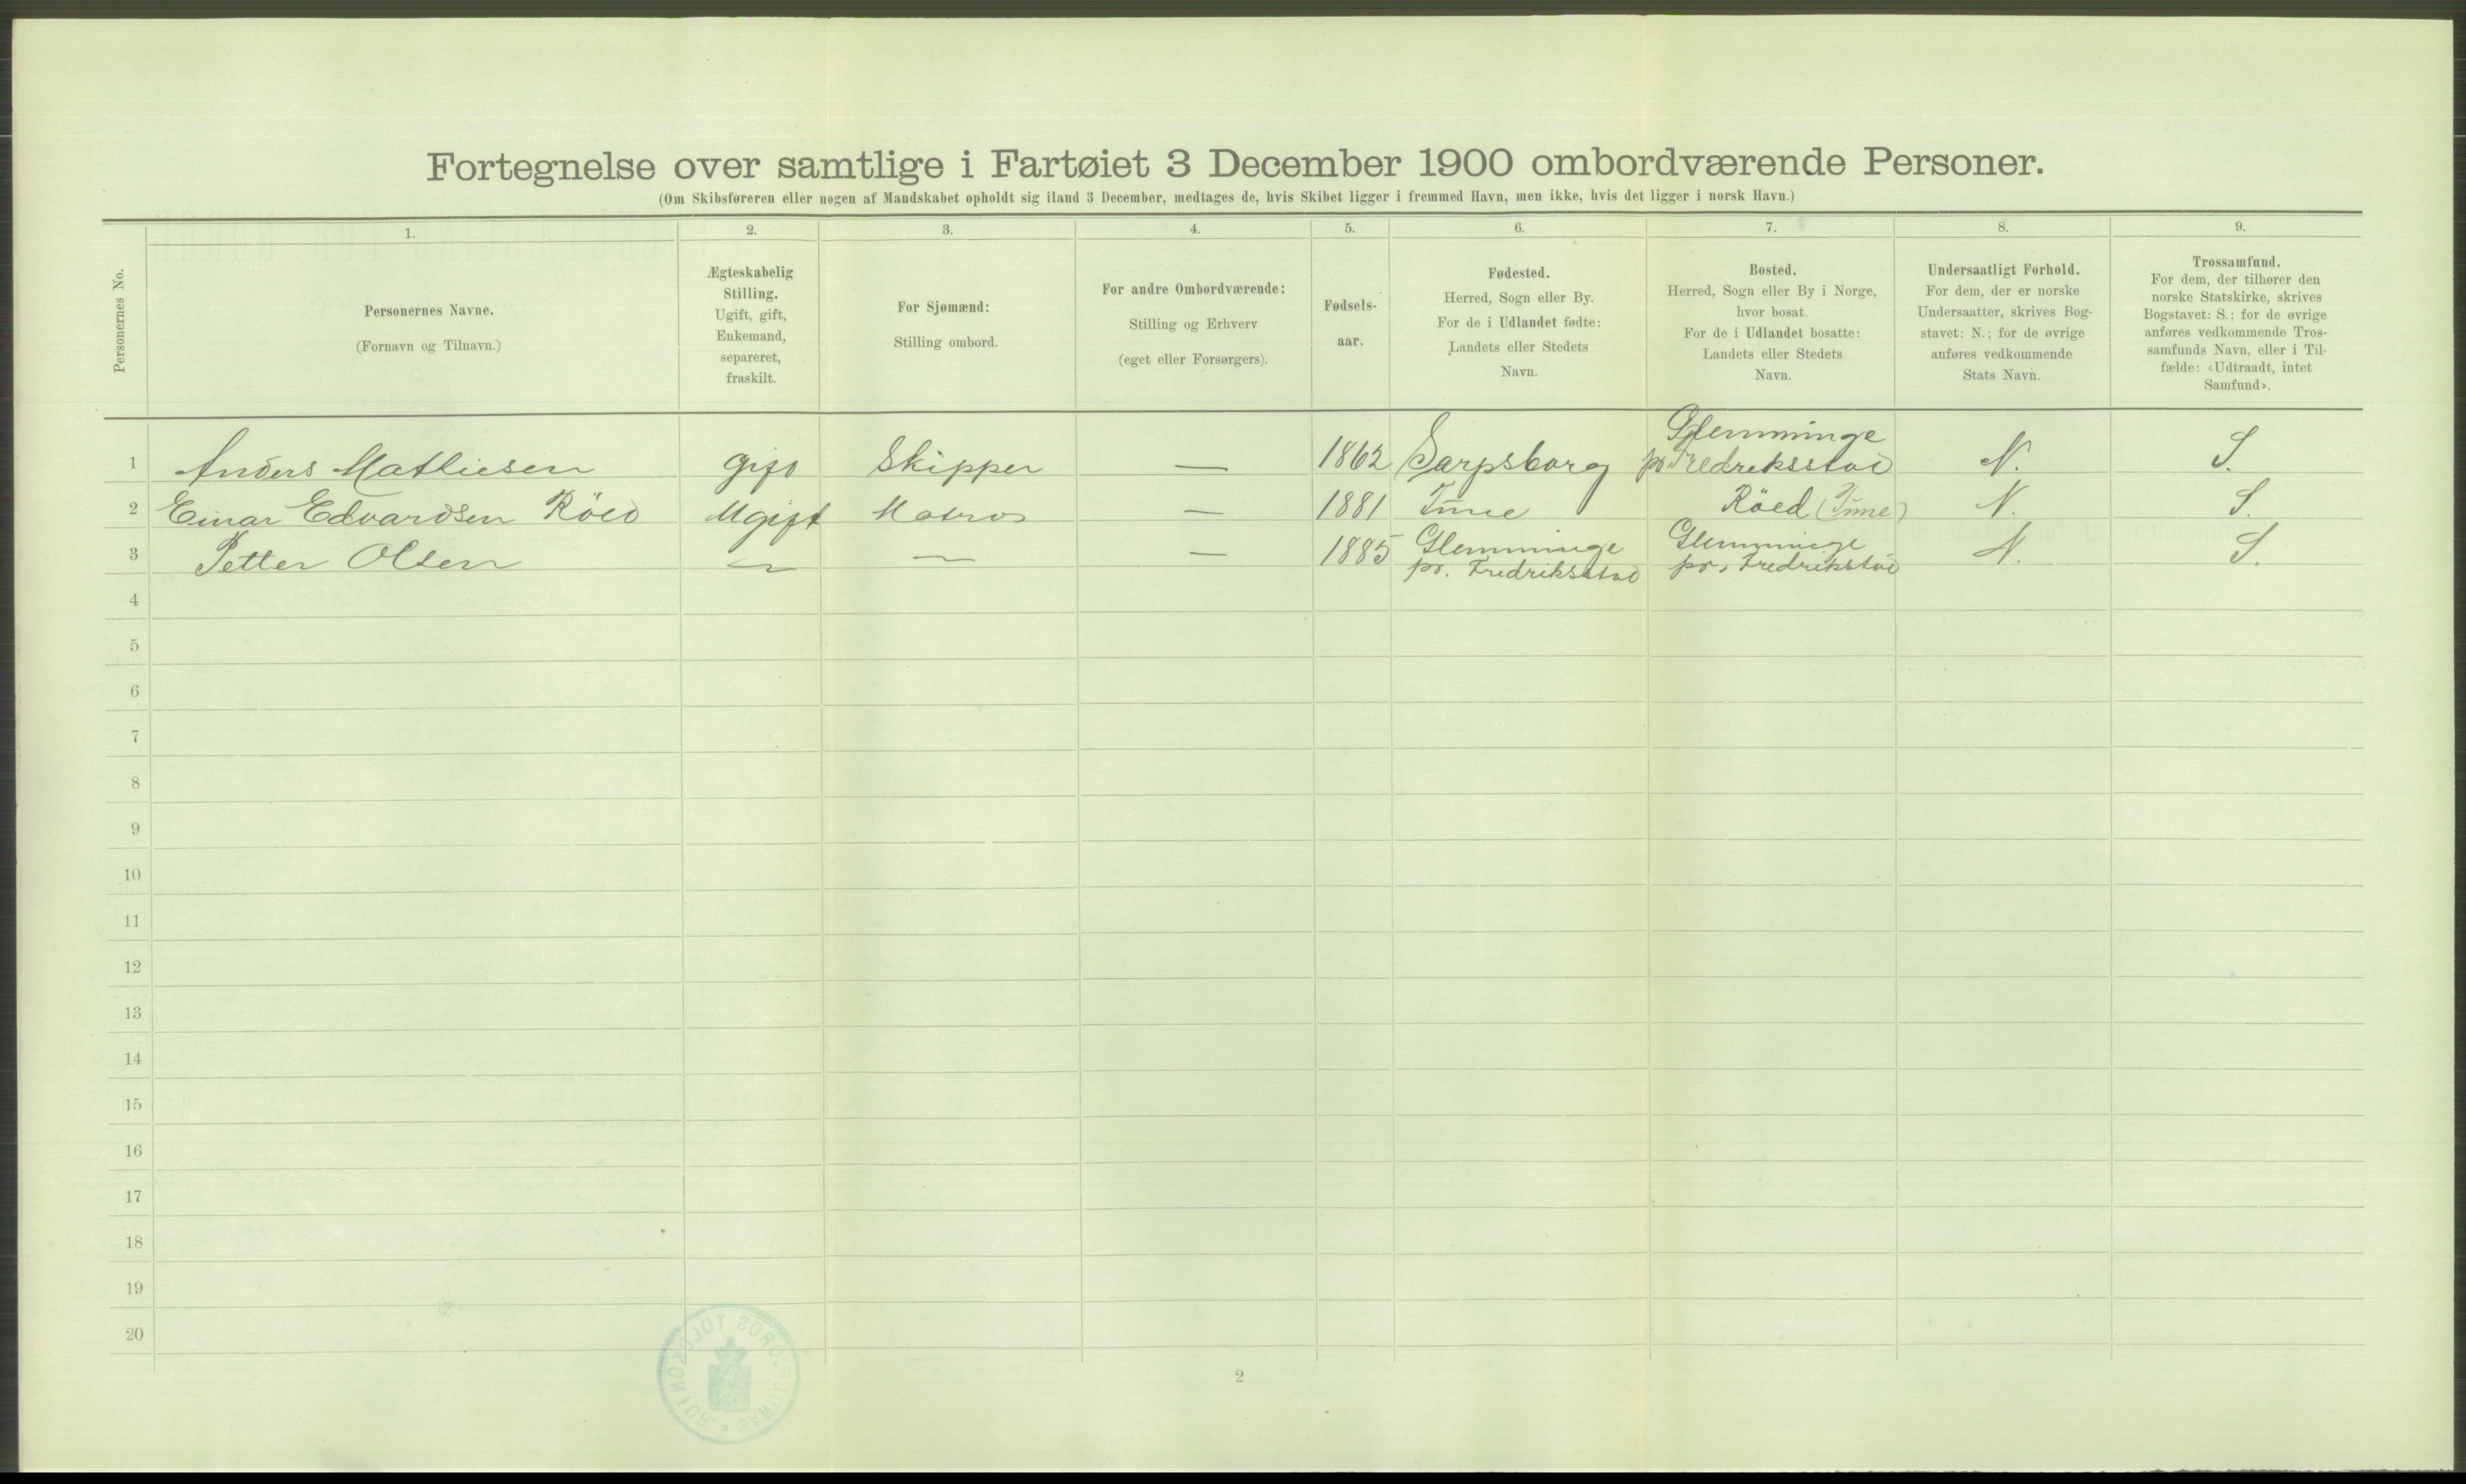 Fortegnelse over samtlige i Fartøiet 3 December 1900 ombordværende Personer.
(Om Skibsføreren eller nogen af Mandskabet opholdt sig iland 3 December, medtages de, hvis Skibet ligger i fremmed Havn, men ikke, hvis det ligger i norsk Havn.)
Personernes No.
1.
Personernes Navne.
(Fornavn og Tilnavn.)
2.
Ægteskabelig
Stilling.
Ugift, gift,
Enkemand,
separeret,
fraskilt.
3.
For Sjømænd:
Stilling ombord.
4.
For andre Ombordværende:
Stilling og Erhverv
(eget eller Forsørgers).
5.
Fødsels-
aar.
6.
Fødested.
Herred, Sogn eller By.
For de i Udlandet fødte:
Landets eller Stedets
Navn.
7.
Bosted.
Herred, Sogn eller By i Norge,
hvor bosat.
For de i Udlandet bosatte:
Landets eller Stedets
Navn.
8.
Undersaatligt Forhold.
For dem, der er norske
Undersaatter, skrives Bog-
stavet: N.; for de øvrige
anføres vedkommende
Stats Navn.
9.
Trossamfund.
For dem, der tilhører den
norske Statskirke, skrives
Bogstavet: S.; for de øvrige
anføres vedkommende Tros-
samfunds Navn, eller i Til-
fælde: «Udtraadt, intet
Samfund».
1 Anders Mathiesen gift Skipper — 1862 Sarpsborg Glemminge pr. Fredriksstad N. S.
2 Einar Edvardsen Röed Ugift Matros — 1881 Tune Röed (Tune) N. S.
3 Petter Olsen — — — 1885 Glemminge pr. Fredriksstad Glemminge pr. Fredrikstad N. S.
4
5
6
7
8
9
10
11
12
13
14
15
16
17
18
19
20
2